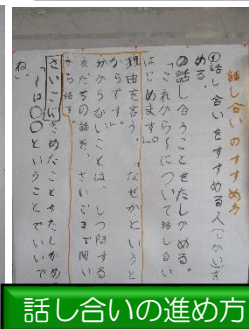 話し合いのすすめ方
①話し合いをすすめる人(しかい)をき
める。
②話し合うことをたしかめる。
「これから〜について話し合いを
はじめます。」
理由を言う。「なぜかというと
からです。」
わからないことは、しつ問する。
友だちの話を、さいごまで聞い
てから話す。
さいごにきめたことをたしかめ
「〜は〇〇ということでいいです
ね。
話し合いの進め方